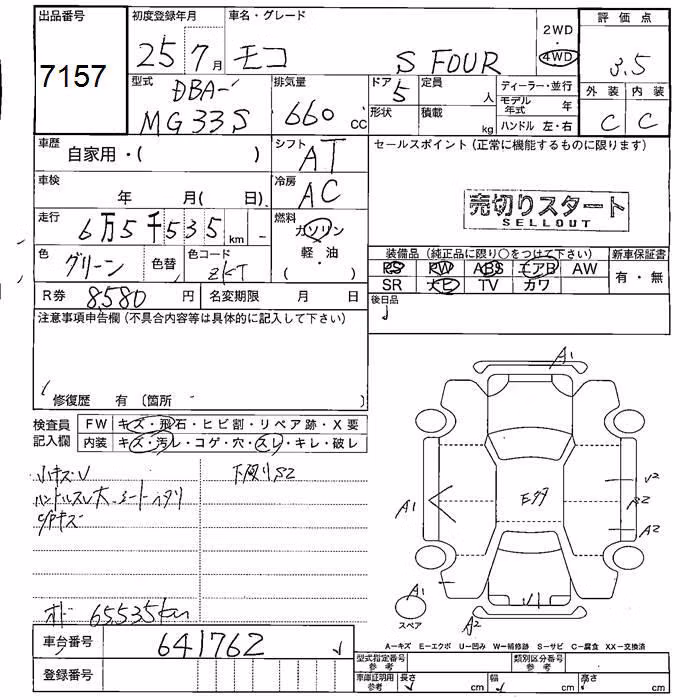 出品番号 初度登録年月 車名・グレード 評価点
7157 25年7月 モコ S FOUR 2WD 4WD 3.5
型式 排気量 ドア 定員 ディーラー・並行 外装 内装
DBA- 660 CC 5 人 モデル年式 年 C C
MG33S 形状 積載 kg ハンドル 左・右
車歴 自家用・( ) シフト AT セールスポイント(正常に機能するものに限ります)
車検 年 月( 日) 冷房 AC 売切りスタート
SELLOUT
走行 6万5千535km 燃料 ガソリン 軽油 ( ・ )
色 グリーン 色替 色コード ZKT
装備品(純正品に限り○をつけて下さい) 新車保証書
PS PW ABS エアB AW 有・無
SR ナビ TV カワ
R券 8580円 名変期限 月 日 後日品
注意事項申告欄(不具合内容等は具体的に記入して下さい)
修復歴 有(箇所 )
検査員記入欄 FW キズ・飛石・ヒビ割・リペア跡・X要
内装 キズ・汚レ・コゲ・穴・スレ・キレ・破レ
小キズU 下廻りS2
ハンドルスレ大 シートヘタリ
C/Pキズ
オド 65535km
車台番号 641762
登録番号
A1
A1
E多
U2
A2
A1
スペア
A2
A－キズ E－エクボ U－凹み W－補修跡 S－サビ C－腐食 XX－交換済
型式指定番号 参考 類別区分番号 参考
車庫証明用 参考 長さ cm 幅 cm 高さ cm